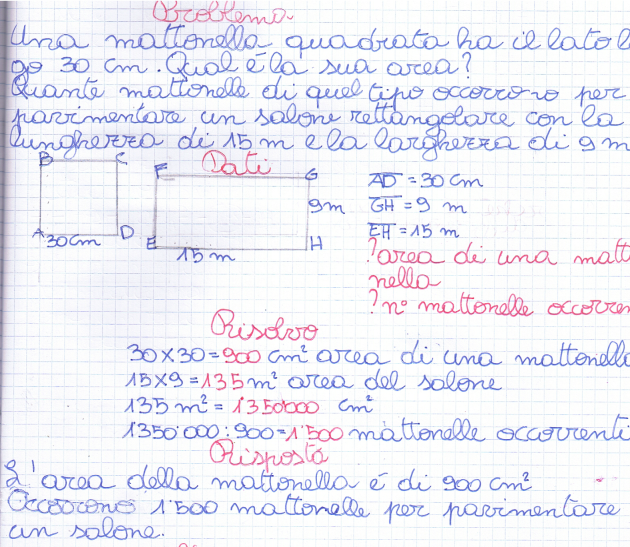 Problema
Una mattonella quadrata ha il lato l
go 30 cm. Qual è la sua area?
Quante mattonelle di quel tipo occorrono per
pavimentare un salone rettangolare con la
lunghezza di 15 m e la larghezza di 9 m
Dati
B C F G
A D E H
30 cm 15 m 9 m
AD = 30 cm
GH = 9 m
EH = 15 m
? area di una matt
nella
? n° mattonelle occorren
Risolvo
30 × 30 = 900 cm² area di una mattonella
15 × 9 = 135 m² area del salone
135 m² = 1˙350˙000 cm²
1350˙000 : 900 = 1˙500 mattonelle occorrenti
Risposta
L'area della mattonella è di 900 cm²
Occorrono 1˙500 mattonelle per pavimentare
un salone.